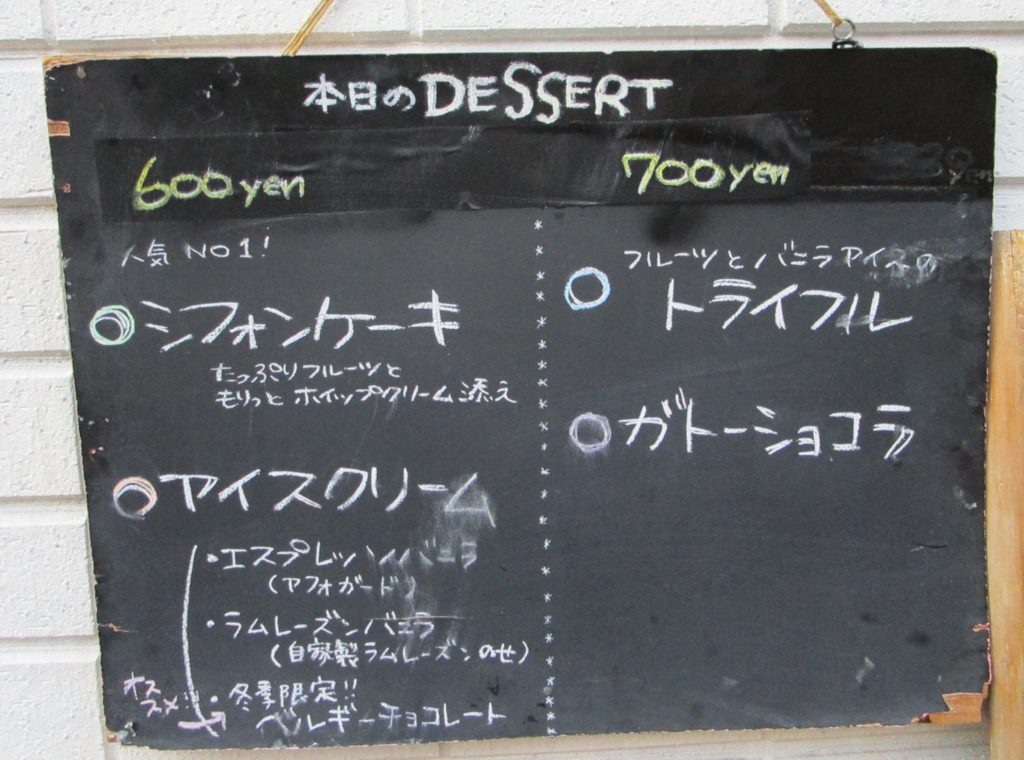 本日のDESSERT
600yen
人気 NO1!
シフォンケーキ
たっぷりフルーツと
もりっと ホイップクリーム添え
アイスクリーム
・エスプレッソバニラ
(アフォガード)
・ラムレーズンバニラ
(自家製ラムレーズンのせ)
オススメ!!
・冬季限定!!
ベルギーチョコレート
700yen
フルーツとバニラアイスの
トライフル
ガトーショコラ